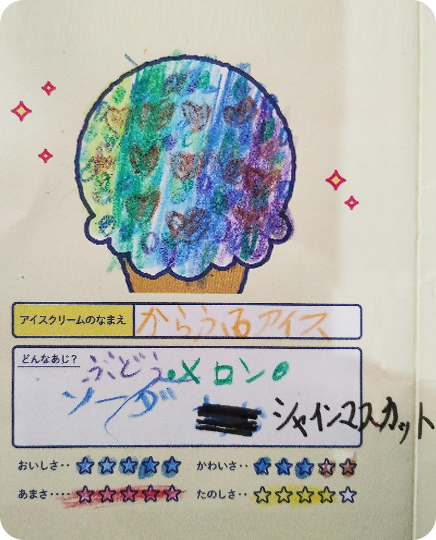 アイスクリームのなまえ からふるアイス
どんなあじ？
ぶどう・メロン・
ソーダ シャインマスカット
おいしさ‥ かわいさ‥
あまさ‥‥ たのしさ‥